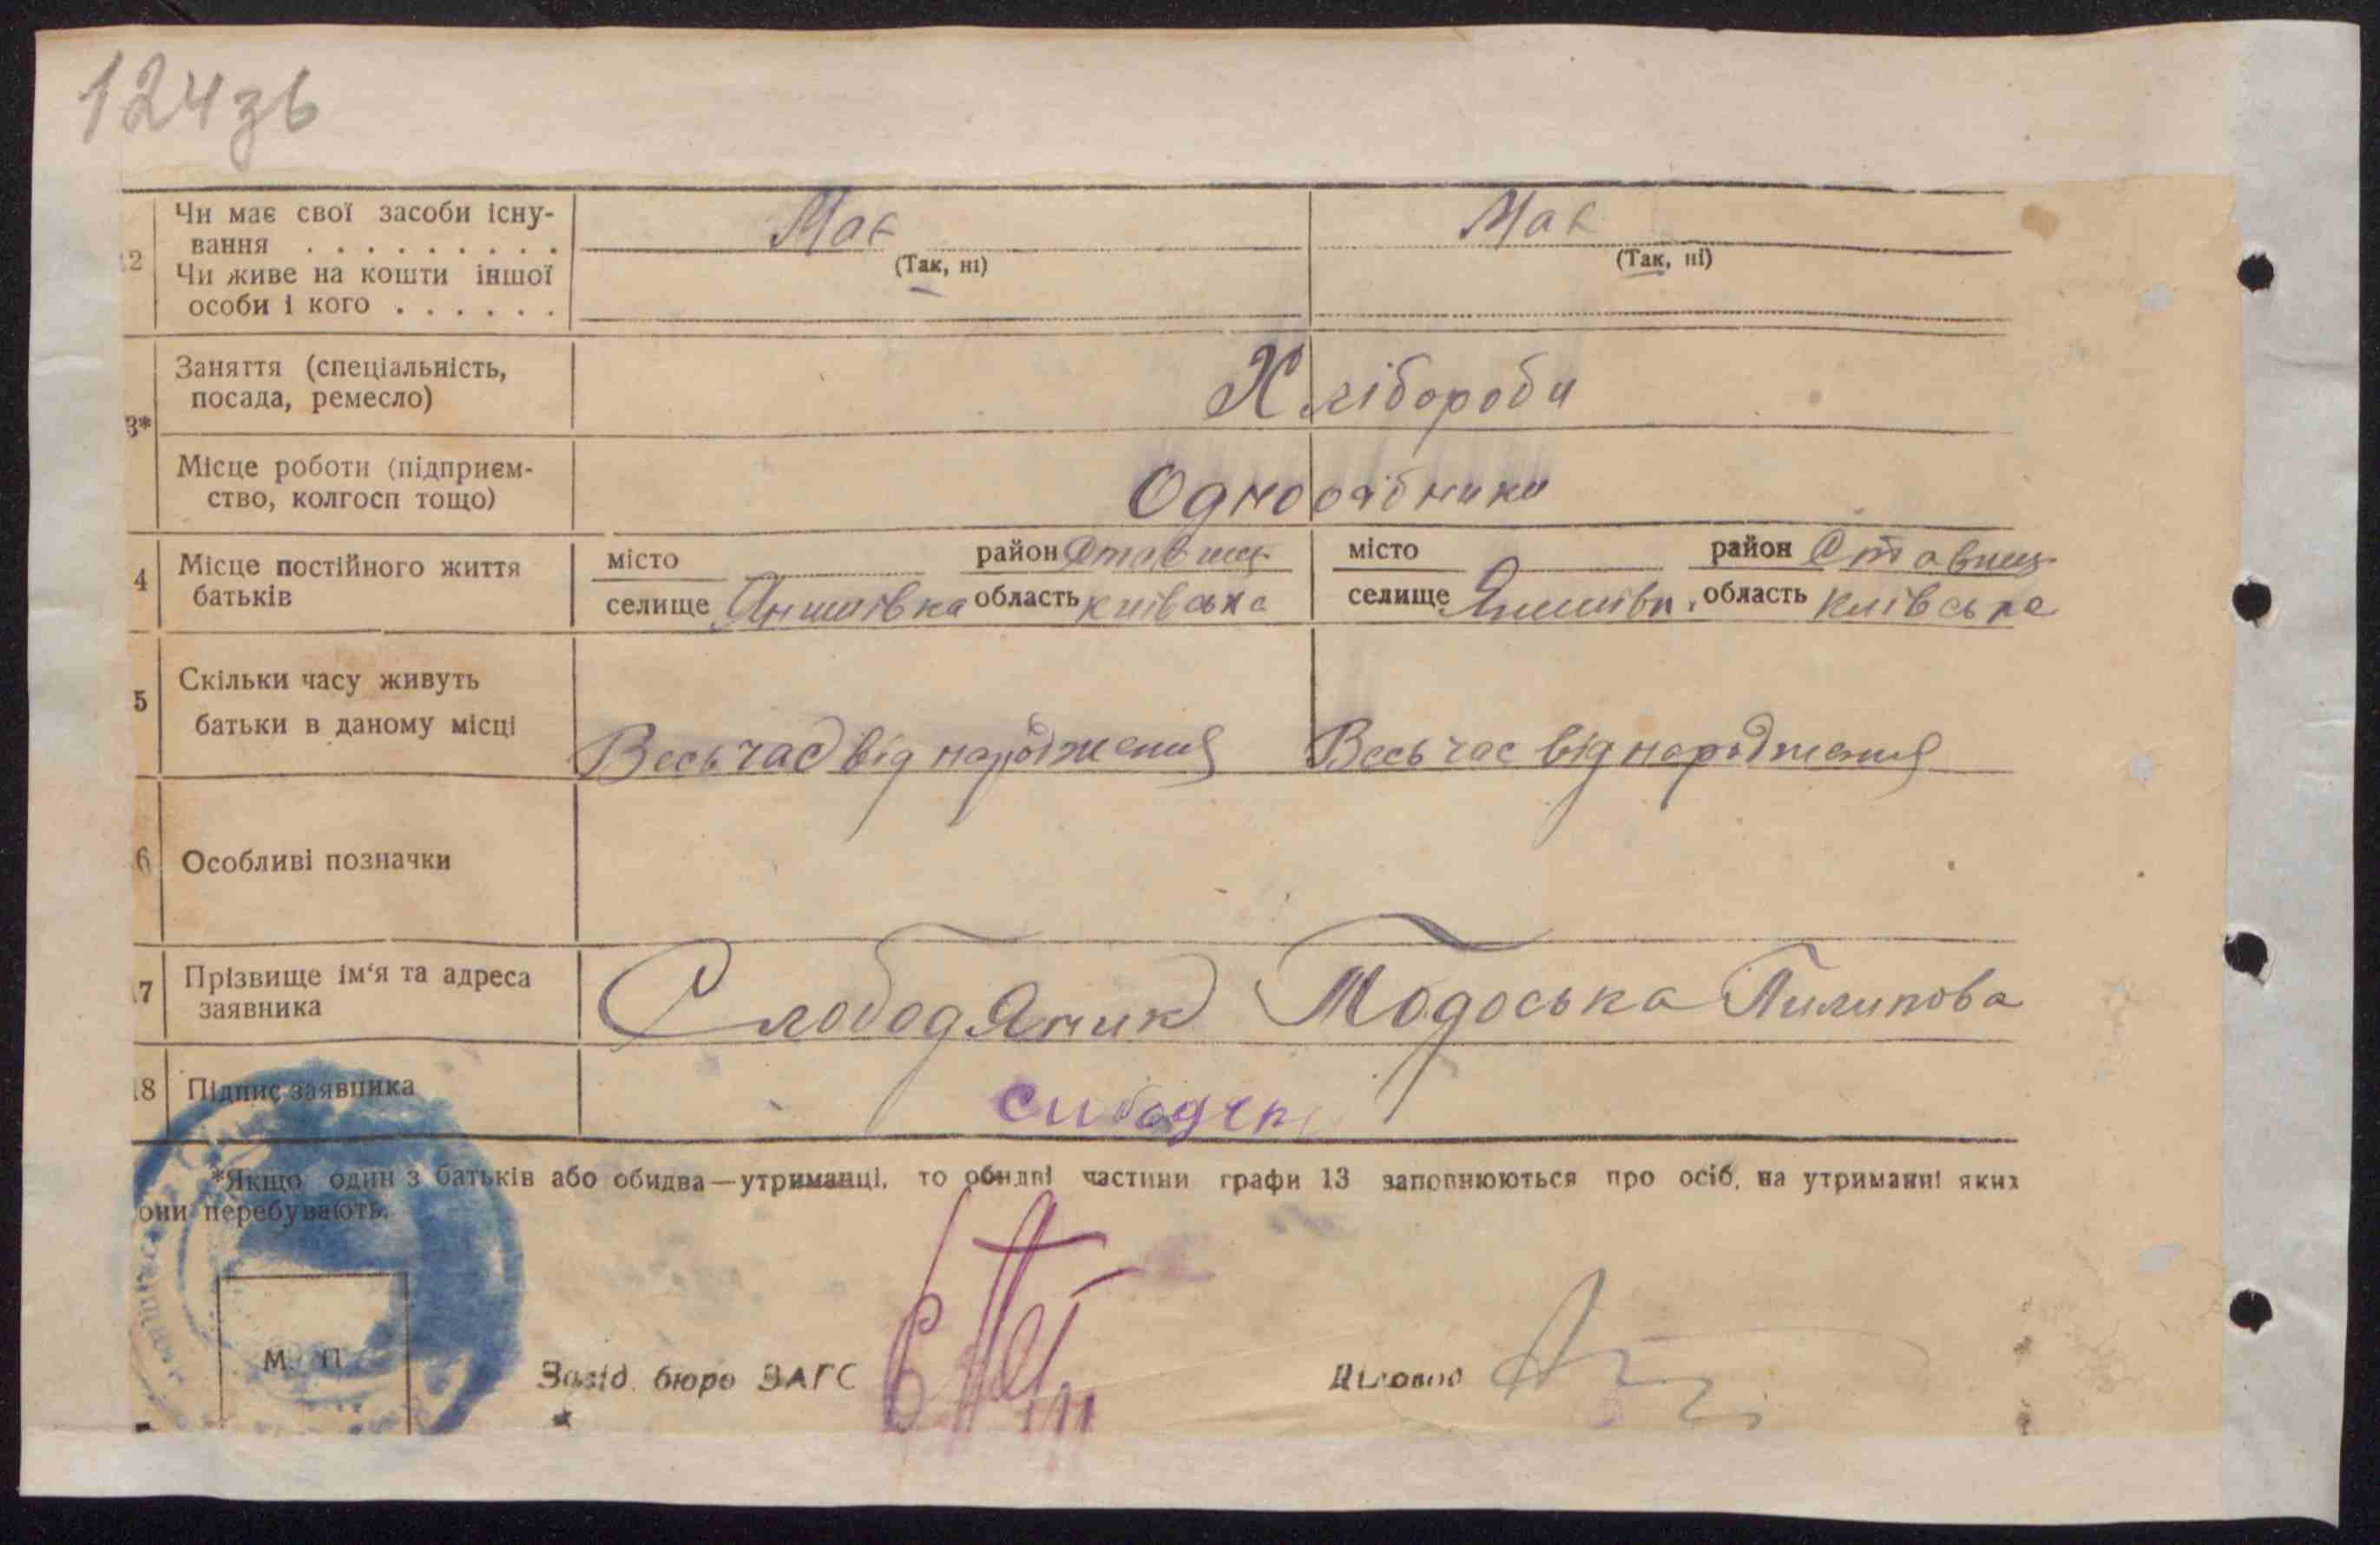 124зв
2 Чи має свої засоби існу-
вання . . . . . . . . . Має Має
(Так, ні) (Так, ні)
Чи живе на кошти іншої
особи і кого . . . . . .
3* Заняття (спеціальність,
посада, ремесло) Хлібороби
Місце роботи (підприєм-
ство, колгосп тощо) Одноосібники
4 Місце постійного життя
батьків
місто район Ставищ місто район Ставищ
селище Янишівка область київська селище область Київська
5 Скільки часу живуть
батьки в даному місці Весь час від народження Весь час від народження
6 Особливі позначки
7 Прізвище ім'я та адреса
заявника Слободяник Тодоська Пилипова
18 Підпис заявника
*Якщо один з батьків або обидва—утриманці, то обидві частини графи 13 заповнюються про осіб, на утриманні яких
они перебувають.
М. П
Завід. бюро ЗАГС Діловод